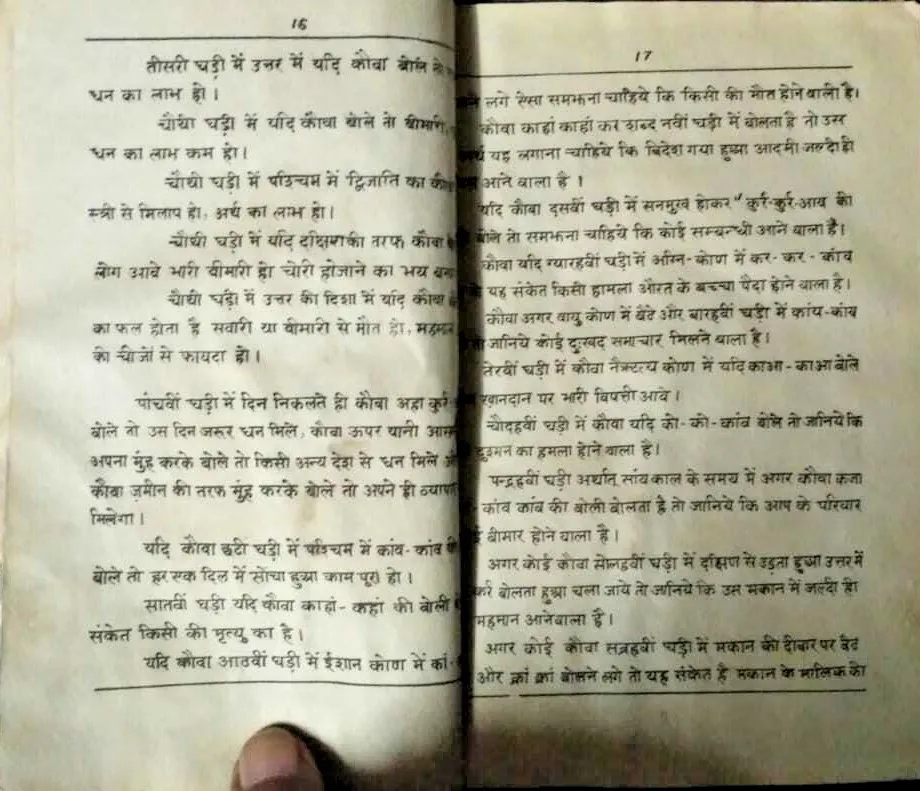 16
तीसरी घड़ी में उत्तर में यदि कौवा बोले तो
धन का लाभ हो ।
चौथी घड़ी में यदि कौवा बोले तो बीमारी,
धन का लाभ कम हो ।
चौथी घड़ी में पश्चिम में द्विजाति का
स्त्री से मिलाप हो, अर्थ का लाभ हो ।
चौथी घड़ी में यदि दक्षिण की तरफ कौवा
लोग आवे भारी बीमारी हो चोरी होजाने का भय
चौथी घड़ी में उत्तर की दिशा में यदि कौवा
का फल होता है सवारी या बीमारी से मौत हो, महमान
की चीजों से फायदा हो ।
पांचवीं घड़ी में दिन निकलते ही कौवा अहा कुर्र-
बोले तो उस दिन जरूर धन मिले, कौवा ऊपर यानी
अपना मुंह करके बोले तो किसी अन्य देश से धन मिले
कौवा ज़मीन की तरफ मुंह करके बोले तो अपने ही
मिलेगा ।
यदि कौवा छटी घड़ी में पश्चिम में कांव-कांव की
बोले तो हर एक दिल में सोंचा हुआ काम पूरा हो ।
सातवीं घड़ी यदि कौवा काहां-कहां की बोली
संकेत किसी की मृत्यु का है ।
यदि कौवा आठवीं घड़ी में ईशान कोण में कां-
17
लगे ऐसा समझना चाहिये कि किसी की मौत होने वाली है।
कौवा काहां काहां कर शब्द नवीं घड़ी में बोलता है तो उस
यह लगाना चाहिये कि विदेश गया हुआ आदमी जल्दी ही
आने वाला है ।
यदि कौवा दसवीं घड़ी में सनमुख होकर "कुर्र-कुर्र-आव की
बोले तो समझना चाहिये कि कोई सम्बन्धी आने वाला है।
कौवा यदि ग्यारहवीं घड़ी में अग्नि-कोण में कर-कर-कांव
यह संकेत किसी हामला औरत के बच्चा पैदा होने वाला है।
कौवा अगर वायु कोण में बैठे और बारहवीं घड़ी में कांय-कांय
जानिये कोई दुःखद समाचार मिलने वाला है।
तेरवीं घड़ी में कौवा नैऋत्य कोण में यदि काआ-काआ बोले
खानदान पर भारी विपत्ती आवे ।
चौदहवीं घड़ी में कौवा यदि को-को-कांव बोले तो जानिये कि
दुश्मन का हमला होने वाला है।
पन्द्रहवीं घड़ी अर्थात् सांय काल के समय में अगर कौवा
कांव कांव की बोली बोलता है तो जानिये कि आप के परिवार
बीमार होने वाला है ।
अगर कोई कौवा सोलहवीं घड़ी में दक्षिण से उड़ता हुआ उत्तर में
बोलता हुआ चला जाये तो जानिये कि उस मकान में जल्दी ही
महमान आनेवाला है ।
अगर कोई कौवा सत्रहवीं घड़ी में मकान की दीवार पर बैठ
और क्रां क्रां बोलने लगे तो यह संकेत है मकान के मालिक को